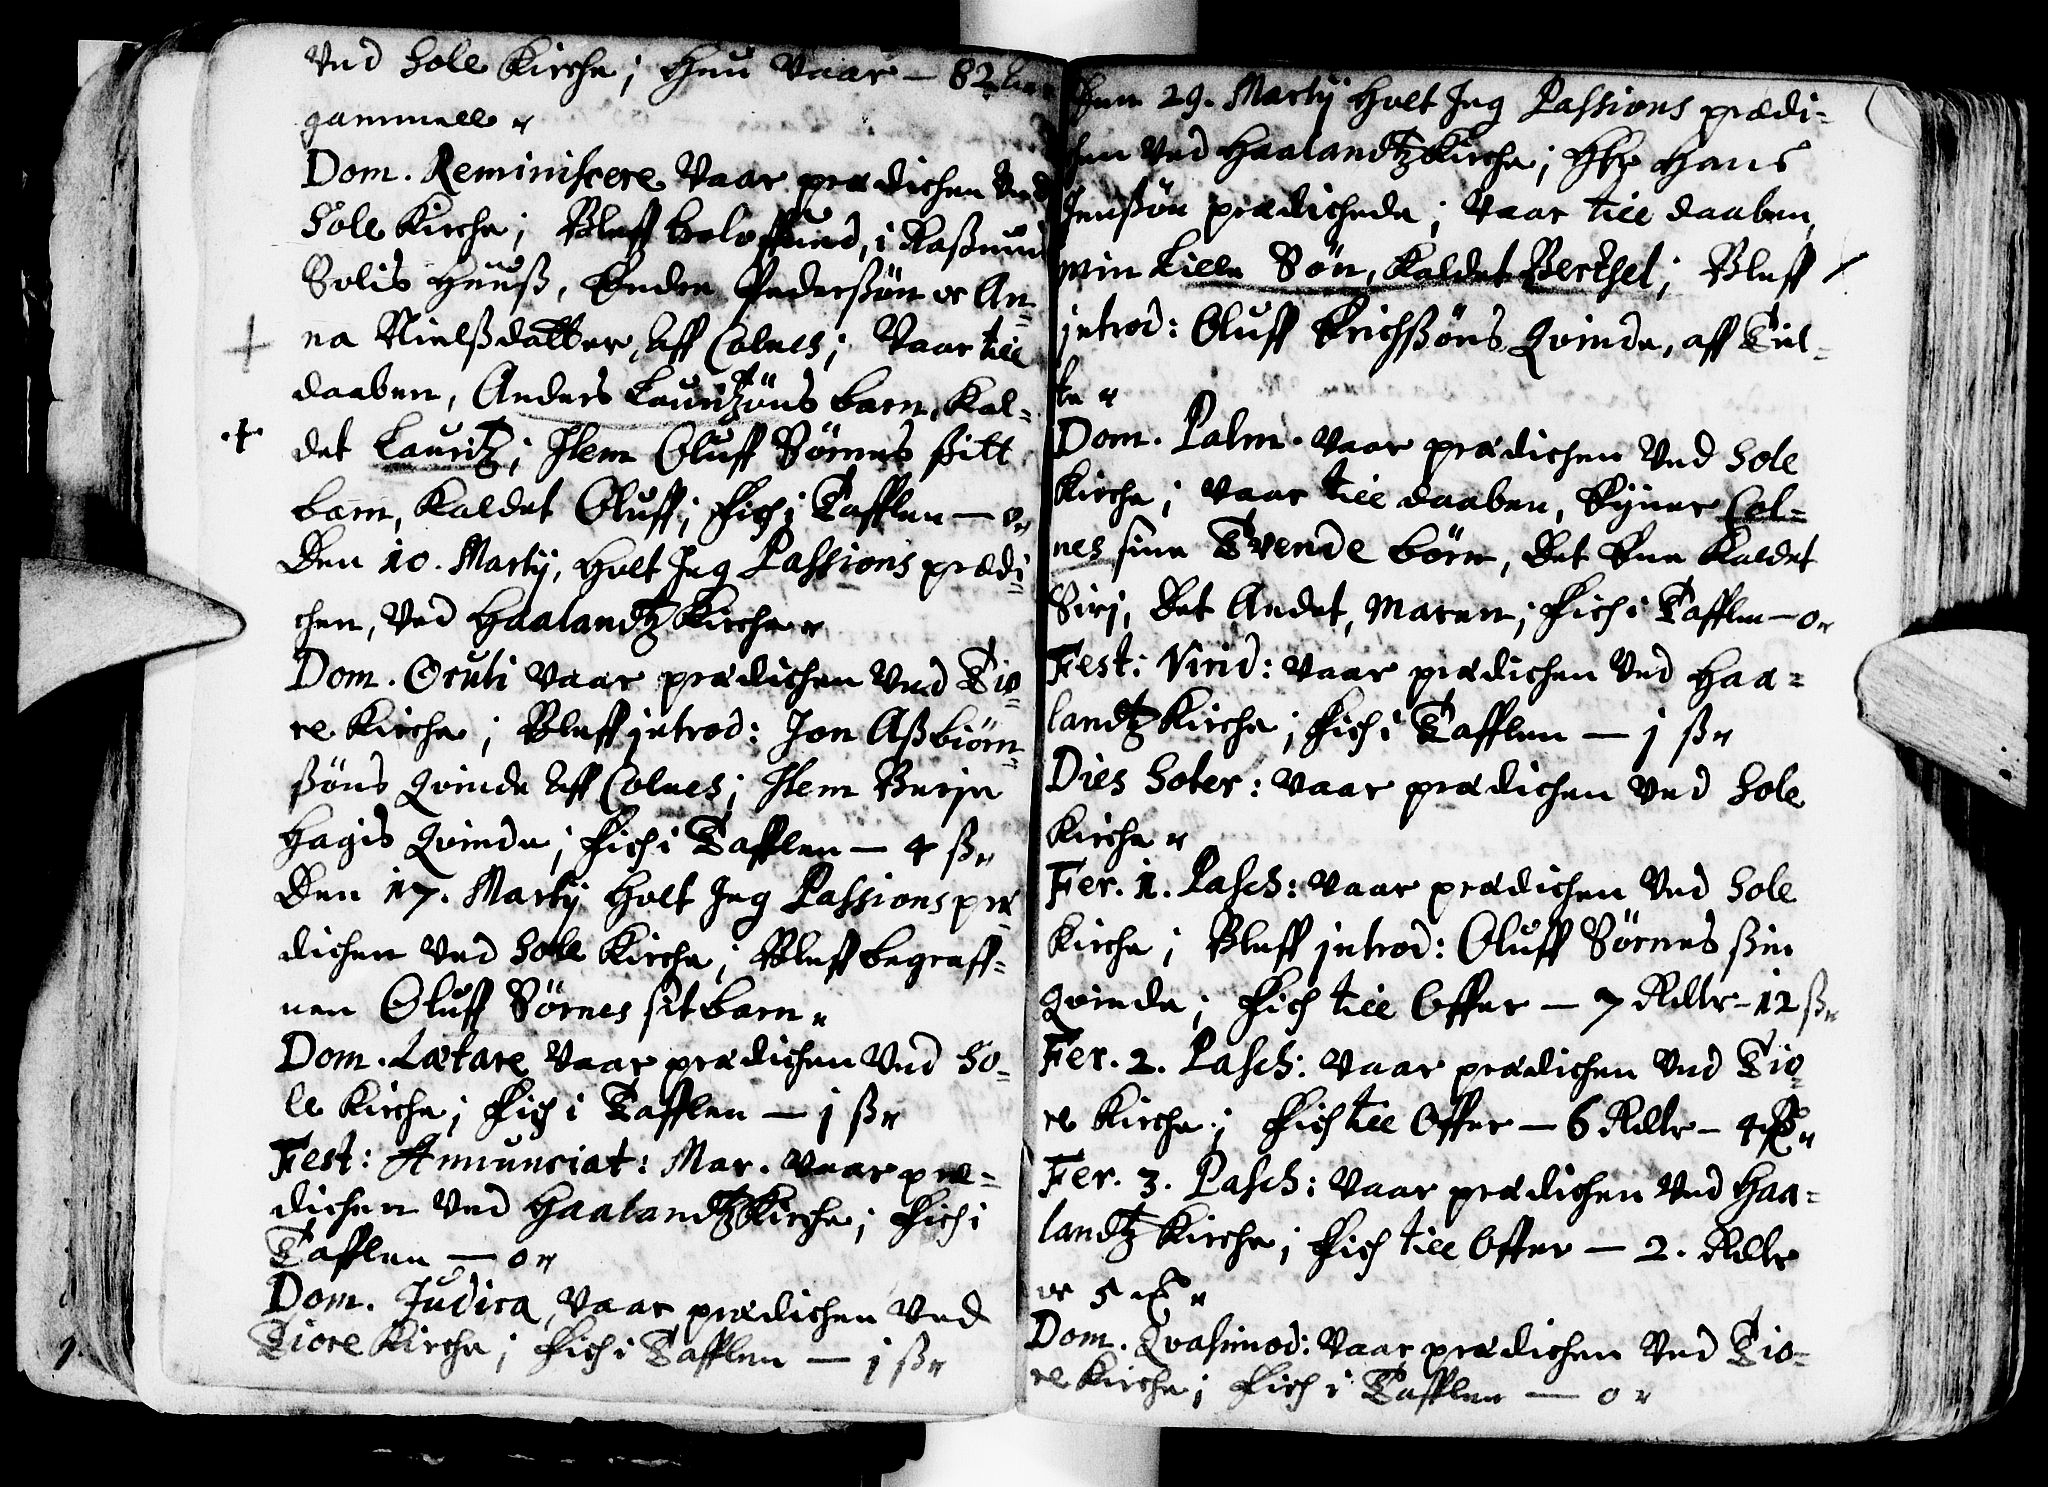 Ved Sole Kirche; Hun vaar — 82 Aar
gammell
Dom. Reminiscere vaar prædichen Ved
Sole Kirche; Bleff troloffued, i Raßmus
Solis Huuß, Endre Pederßøn oc An=
na Nielßdatter, Aff Colnes; Vaar till
daaben, Anders Lauritzøns barn, Kal=
det Lauritz; Item Oluff Sørnes ßitt
barn, Kaldet Oluff; Fich i Tafflen — 0
Den 10. Martij, Holt Jeg Passions prædi=
chen, Ved Haalandtz Kirche
Dom. Oculi vaar prædichen Ved Tio=
re Kirche; Bleff introd: Jon Aßbiørn=
ßøns Qvinde Aff Colnes; Item Børje
Hagis Qvinde; Fich i Tafflen — 4 ß
Den 17. Martij Holt Jeg Passions præ=
dichen Ved Sole Kirche; Bleff begraff=
uen Oluff Sørnes sit barn
Dom. Lætare vaar prædichen Ved So=
le Kirche; Fich i Tafflen — j ß
Fest: Annunciat: Mar. vaar præ=
dichen Ved Haalandtz Kirche; Fich i
Tafflen — 0
Dom. Judica, vaar prædichen Ved
Tiore Kirche; Fich i Tafflen — j ß
Den 29. Martij Holt Jeg Passions prædi=
chen Ved Haalandtz Kirche; Hr Hans
Jenßøn prædichede; Vaar till daaben,
min Lille Søn, Kaldet Berthel; Bleff
introd: Oluff Erichßøns Qvinde, aff Tiel=
te
Dom. Palm. vaar prædichen Ved Sole
Kirche; Vaar till daaben, Eyner Col=
nes sine Tvende børn, Det Ene Kaldet
Siri, Det Andet, Maren; Fich i Tafflen — 0
Fest: Virid: vaar prædichen Ved Haa=
landtz Kirche; Fich i Tafflen — j ß
Dies Soter: vaar prædichen Ved Sole
Kirche
Fer. 1. Pasch: vaar prædichen Ved Sole
Kirche; Bleff introd: Oluff Sørnes ßin
Qvinde; Fich till Offer — 7 Rdlr — 12 ß
Fer. 2. Pasch: vaar prædichen Ved Tio=
re Kirche; Fich till Offer — 6 Rdlr — 4
Fer. 3. Pasch: vaar prædichen Ved Haa=
landtz Kirche; Fich till Offer — 2. Rdlr
oc 5
Dom. Qvasimod: vaar prædichen Ved Tio=
re Kirche; Fich i Tafflen — 0